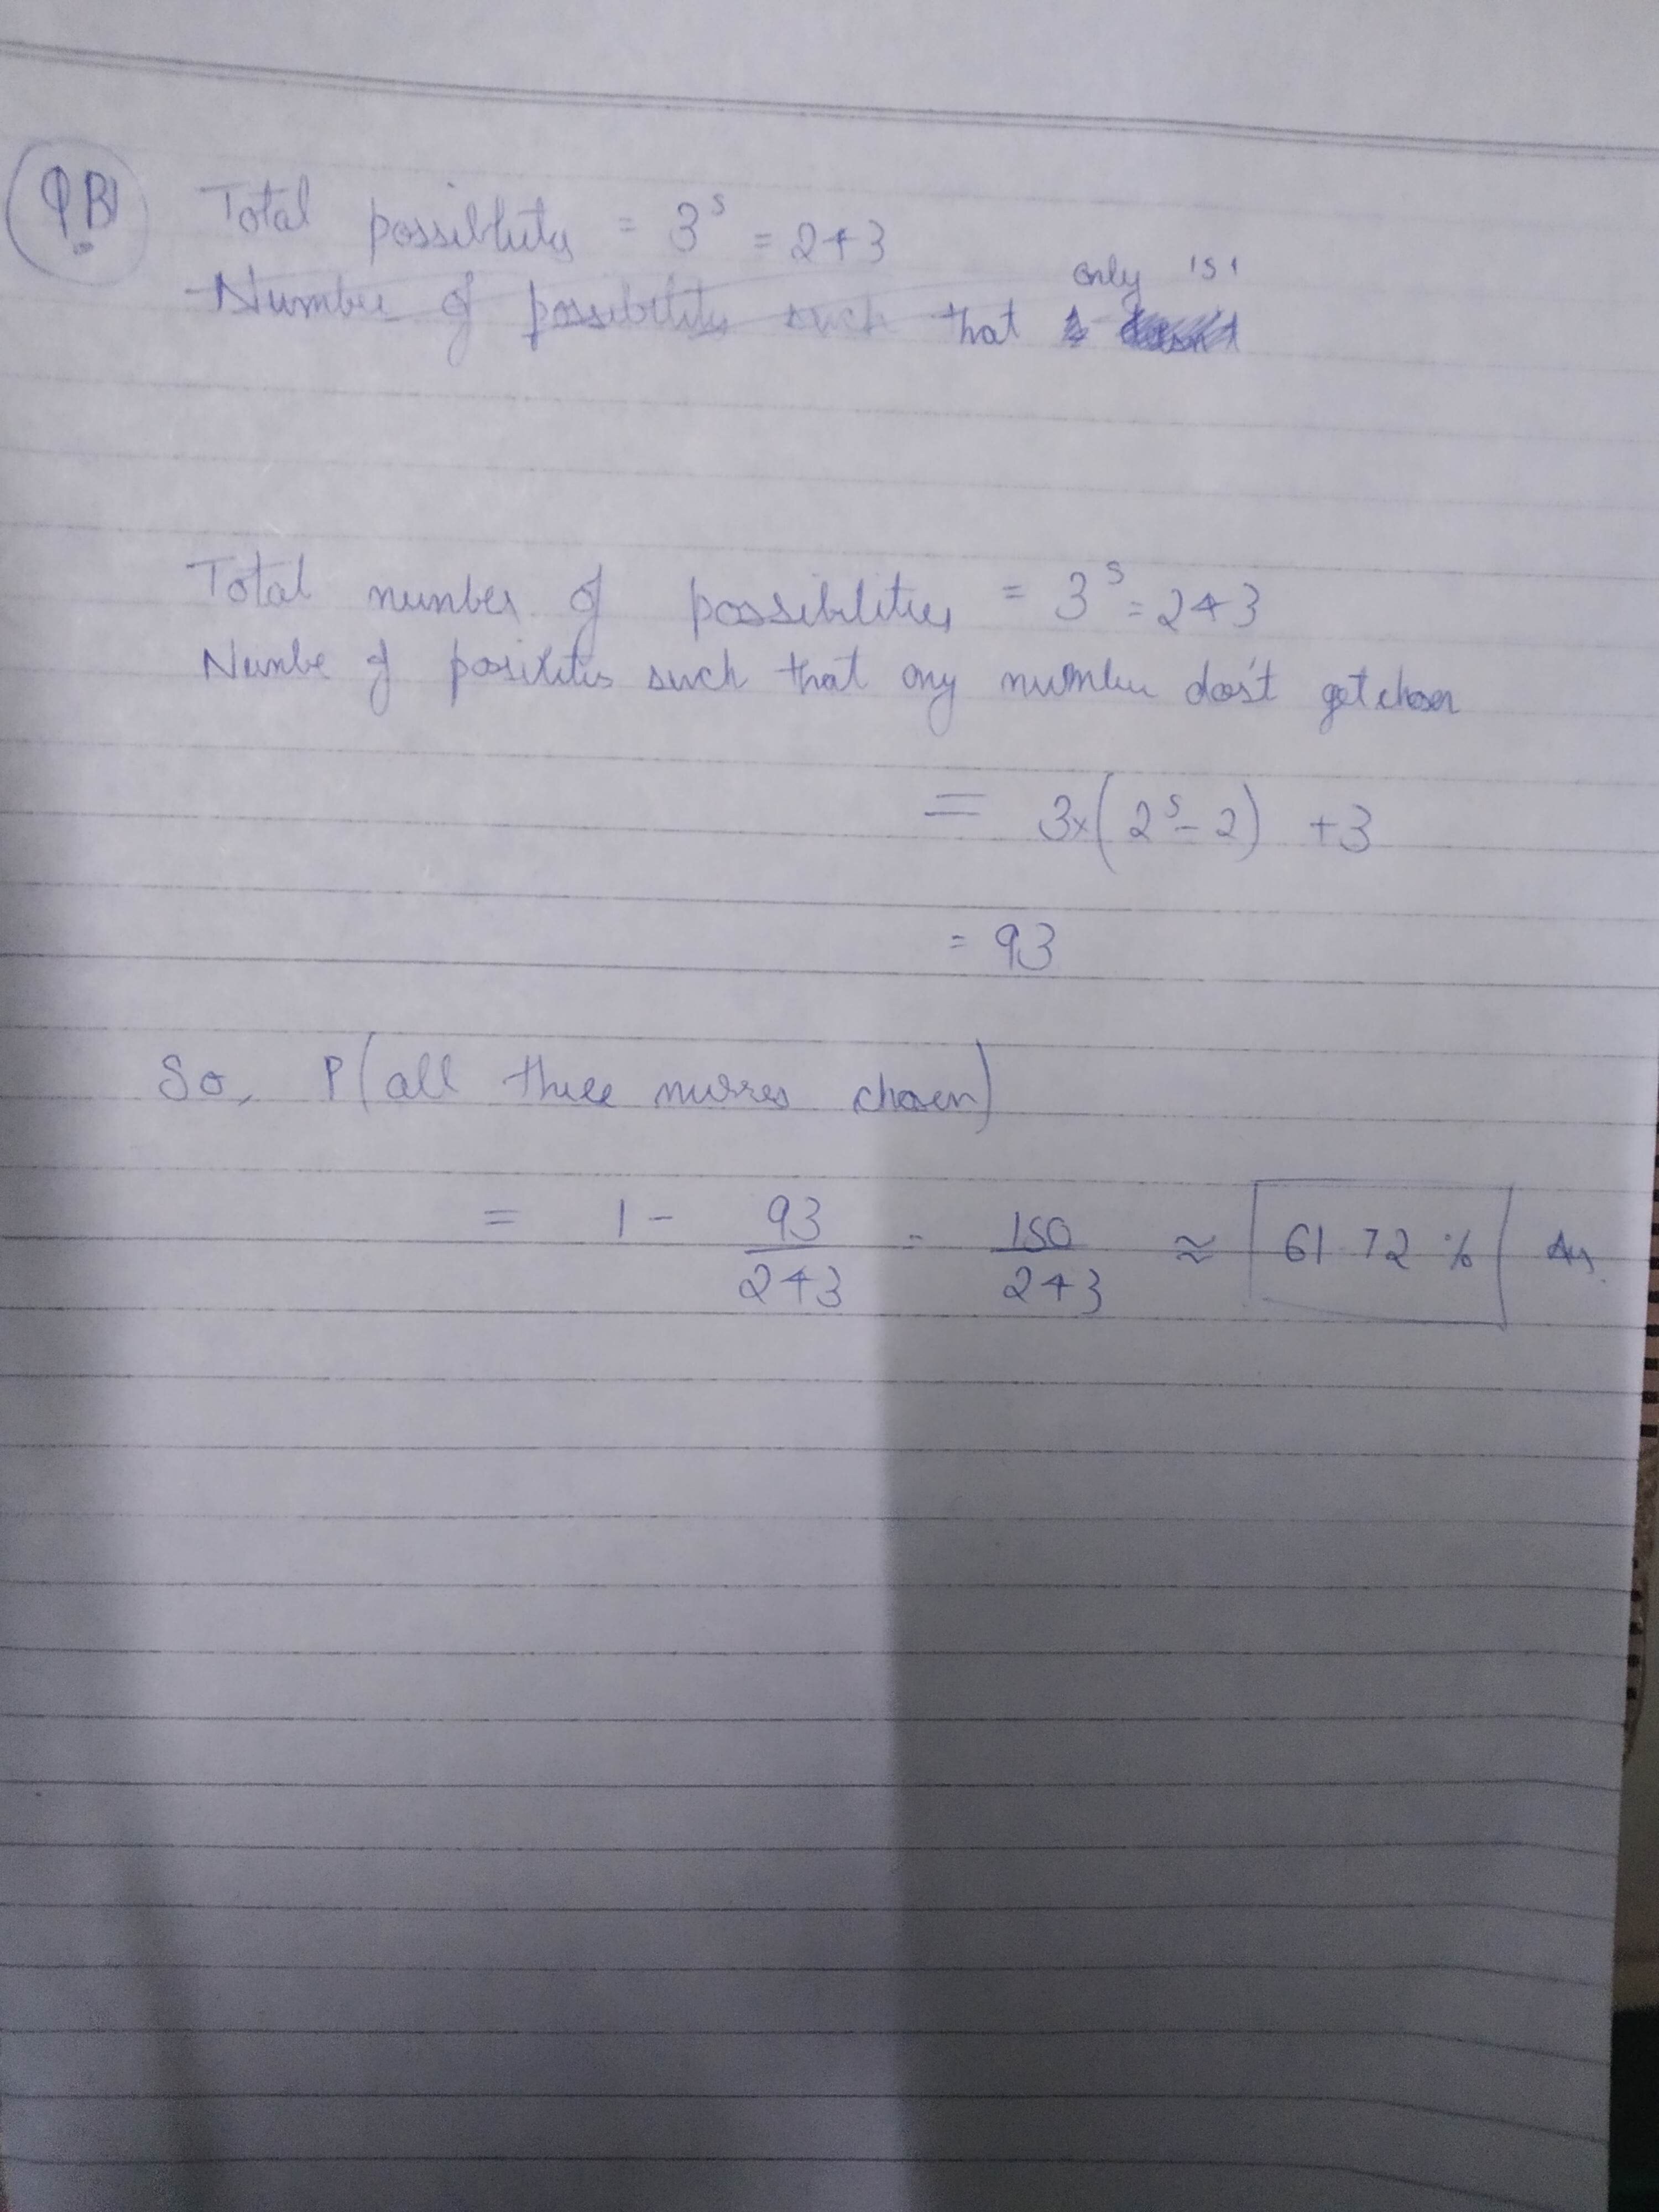 QB)
Total possiblity = 3⁵ = 243
only '5'
Number of possibility such that
Total number of possiblities = 3⁵ = 243
Numbe of posilitis such that any number dos't get chosen
= 3x(2⁵-2) +3
= 93
So, P(all three nurses chosen)
= 1 - 93/243 = 150/243 ≈ 61.72 % Ans.